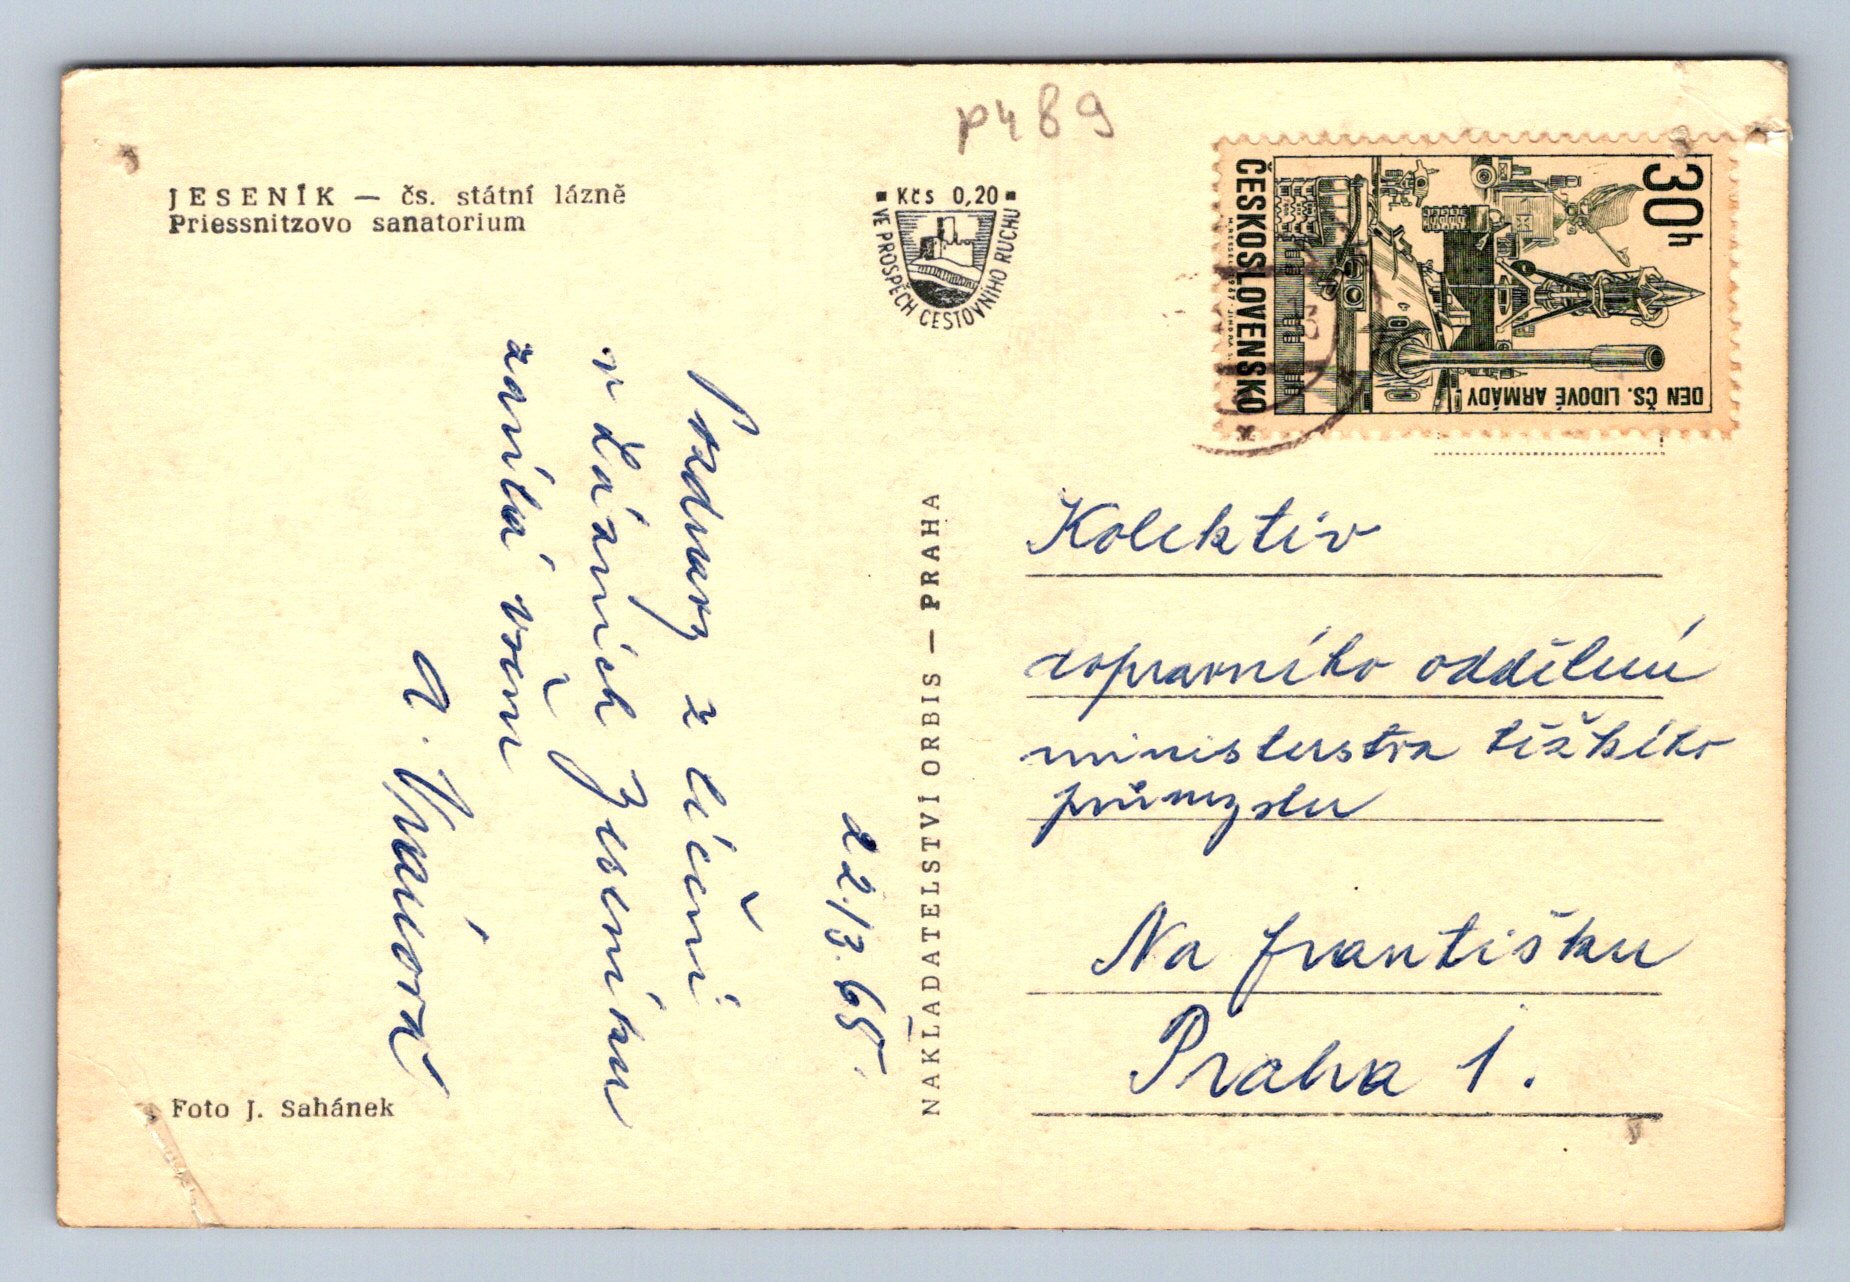 p489
JESENÍK — čs. státní lázně
Priessnitzovo sanatorium
Kčs 0,20
VE PROSPĚCH CESTOVNÍHO RUCHU
30h
ČESKOSLOVENSKO
DEN ČS. LIDOVÉ ARMÁDY
22./3. 68.
Pozdravy z léčení
v Lázních Jeseníku
zasílá všem
A. Vráková
NAKLADATELSTVÍ ORBIS — PRAHA
Kolektiv
dopravního oddělení
ministerstva těžkého
průmyslu
Na františku
Praha 1.
Foto J. Sahánek